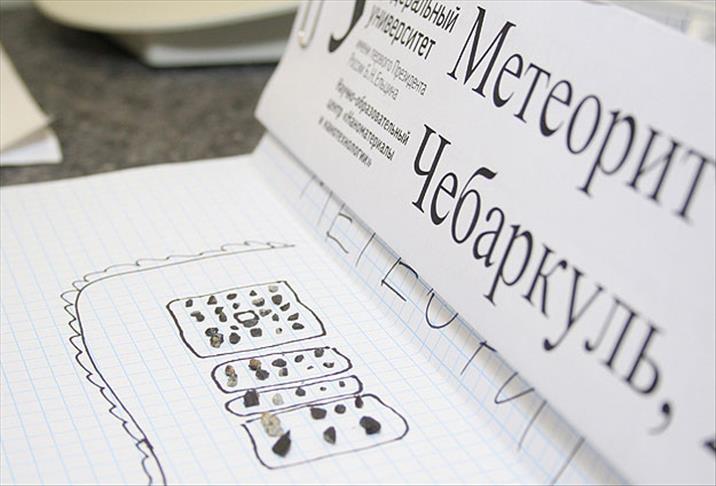 университет
имени первого Президента
России Б.Н.Ельцина
Научно-образовательный
центр «Наноматериалы
и нанотехнологии»
Метеорит
Чебаркуль,